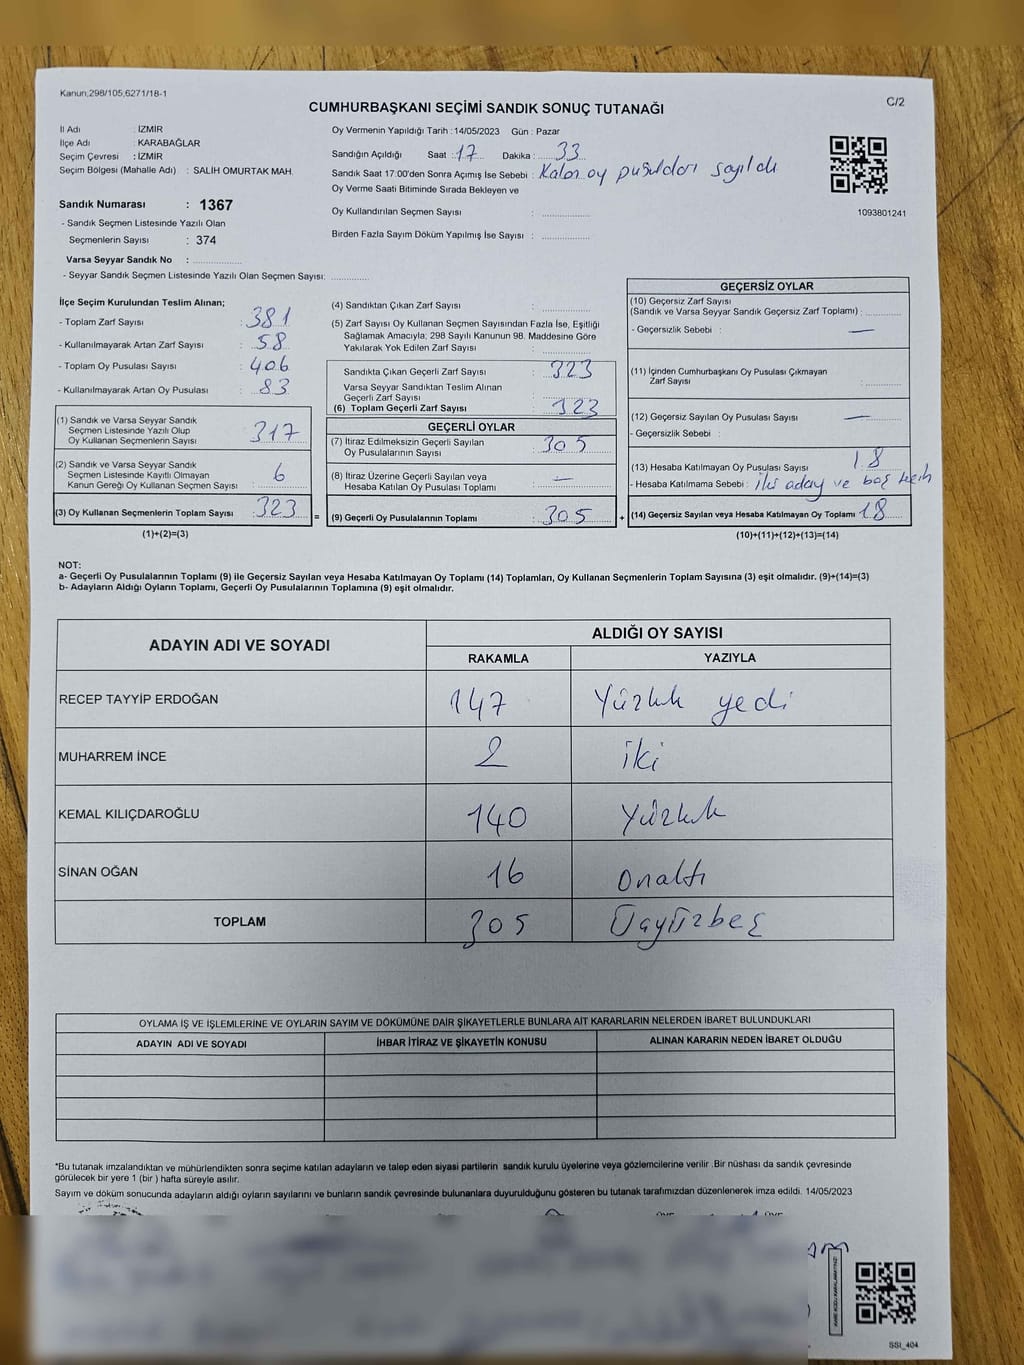 Kanun,298/105,6271/18-1
C/2
CUMHURBAŞKANI SEÇİMİ SANDIK SONUÇ TUTANAĞI
İl Adı : İZMİR
İlçe Adı : KARABAĞLAR
Seçim Çevresi : İZMİR
Seçim Bölgesi (Mahalle Adı) : SALİH OMURTAK MAH.
Sandık Numarası : 1367
- Sandık Seçmen Listesinde Yazılı Olan
Seçmenlerin Sayısı : 374
Varsa Seyyar Sandık No :
- Seyyar Sandık Seçmen Listesinde Yazılı Olan Seçmen Sayısı:
Oy Vermenin Yapıldığı Tarih : 14/05/2023 Gün : Pazar
Sandığın Açıldığı Saat : 17 Dakika : 33
Sandık Saat 17.00'den Sonra Açımış İse Sebebi : Kalan oy pusulaları sayıldı
Oy Verme Saati Bitiminde Sırada Bekleyen ve
Oy Kullandırılan Seçmen Sayısı :
Birden Fazla Sayım Döküm Yapılmış İse Sayısı :
1093801241
İlçe Seçim Kurulundan Teslim Alınan;
- Toplam Zarf Sayısı : 381
- Kullanılmayarak Artan Zarf Sayısı : 58
- Toplam Oy Pusulası Sayısı : 406
- Kullanılmayarak Artan Oy Pusulası : 83
(1) Sandık ve Varsa Seyyar Sandık
Seçmen Listesinde Yazılı Olup
Oy Kullanan Seçmenlerin Sayısı : 317
(2) Sandık ve Varsa Seyyar Sandık
Seçmen Listesinde Kayıtlı Olmayan
Kanun Gereği Oy Kullanan Seçmen Sayısı : 6
(3) Oy Kullanan Seçmenlerin Toplam Sayısı : 323 =
(1)+(2)=(3)
(4) Sandıktan Çıkan Zarf Sayısı :
(5) Zarf Sayısı Oy Kullanan Seçmen Sayısından Fazla İse, Eşitliği
Sağlamak Amacıyla, 298 Sayılı Kanunun 98. Maddesine Göre
Yakılarak Yok Edilen Zarf Sayısı :
Sandıkta Çıkan Geçerli Zarf Sayısı : 323
Varsa Seyyar Sandıktan Teslim Alınan
Geçerli Zarf Sayısı :
(6) Toplam Geçerli Zarf Sayısı : 323
GEÇERLİ OYLAR
(7) İtiraz Edilmeksizin Geçerli Sayılan
Oy Pusulalarının Sayısı : 305
(8) İtiraz Üzerine Geçerli Sayılan veya
Hesaba Katılan Oy Pusulası Toplamı : —
(9) Geçerli Oy Pusulalarının Toplamı : 305 +
GEÇERSİZ OYLAR
(10) Geçersiz Zarf Sayısı
(Sandık ve Varsa Seyyar Sandık Geçersiz Zarf Toplamı) :
- Geçersizlik Sebebi : —
(11) İçinden Cumhurbaşkanı Oy Pusulası Çıkmayan
Zarf Sayısı :
(12) Geçersiz Sayılan Oy Pusulası Sayısı : —
- Geçersizlik Sebebi :
(13) Hesaba Katılmayan Oy Pusulası Sayısı : 18
- Hesaba Katılmama Sebebi : iki aday ve boş
(14) Geçersiz Sayılan veya Hesaba Katılmayan Oy Toplamı : 18
(10)+(11)+(12)+(13)=(14)
NOT:
a- Geçerli Oy Pusulalarının Toplamı (9) ile Geçersiz Sayılan veya Hesaba Katılmayan Oy Toplamı (14) Toplamları, Oy Kullanan Seçmenlerin Toplam Sayısına (3) eşit olmalıdır. (9)+(14)=(3)
b- Adayların Aldığı Oyların Toplamı, Geçerli Oy Pusulalarının Toplamına (9) eşit olmalıdır.
ADAYIN ADI VE SOYADI
ALDIĞI OY SAYISI
RAKAMLA YAZIYLA
RECEP TAYYİP ERDOĞAN 147 Yüzkrk yedi
MUHARREM İNCE 2 iki
KEMAL KILIÇDAROĞLU 140 Yüzkrk
SİNAN OĞAN 16 Onaltı
TOPLAM 305 Üçyüzbeş
OYLAMA İŞ VE İŞLEMLERİNE VE OYLARIN SAYIM VE DÖKÜMÜNE DAİR ŞİKAYETLERLE BUNLARA AİT KARARLARIN NELERDEN İBARET BULUNDUKLARI
ADAYIN ADI VE SOYADI İHBAR İTİRAZ VE ŞİKAYETİN KONUSU ALINAN KARARIN NEDEN İBARET OLDUĞU
*Bu tutanak imzalandıktan ve mühürlendikten sonra seçime katılan adayların ve talep eden siyasi partilerin sandık kurulu üyelerine veya gözlemcilerine verilir .Bir nüshası da sandık çevresinde
görülecek bir yere 1 (bir ) hafta süreyle asılır.
Sayım ve döküm sonucunda adayların aldığı oyların sayılarını ve bunların sandık çevresinde bulunanlara duyurulduğunu gösteren bu tutanak tarafımızdan düzenlenerek imza edildi. 14/05/2023
SSI_404